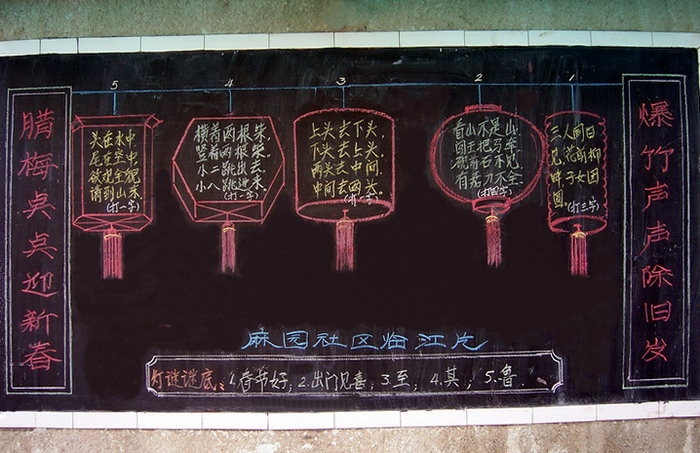 爆竹声声除旧岁
1
三人同日
见花前柳
畔子女团
圆
(打三字)
2
山不是山
闯王把马牵
砚前石不见
有刀不全
(打四字)
3
上头去下头,
下头去上头,
两头去中间,
中间去两头。
(打一字)
4
横着两根柴,
竖着两根柴。
小二跳出去,
小八跳进来。
(打一字)
5
头在水中
尾在空中
欲观全貌
请到山东
(打一字)
腊梅点点迎新春
麻园社区临江片
灯谜谜底:1.春节好;2.出门见善;3.至;4.其;5.鲁.